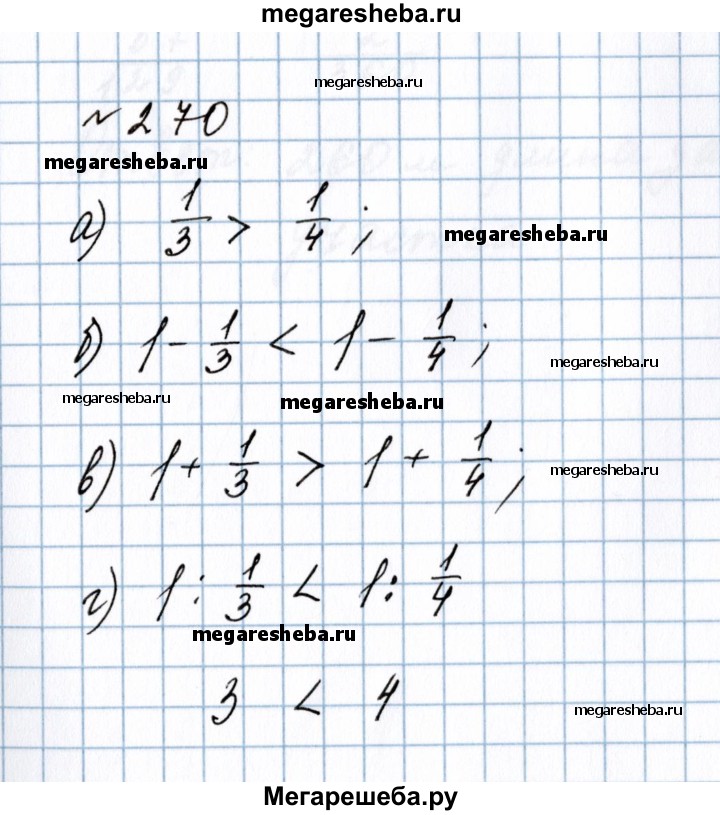 megaresheba.ru
megaresheba.ru
№ 270
megaresheba.ru
а) 1/3 > 1/4 ;
megaresheba.ru
б) 1 - 1/3 < 1 - 1/4 ;
megaresheba.ru
megaresheba.ru
megaresheba.ru
в) 1 + 1/3 > 1 + 1/4 ;
megaresheba.ru
г) 1 : 1/3 < 1 : 1/4
megaresheba.ru
3 < 4
megaresheba.ru
Мегарешеба.ру